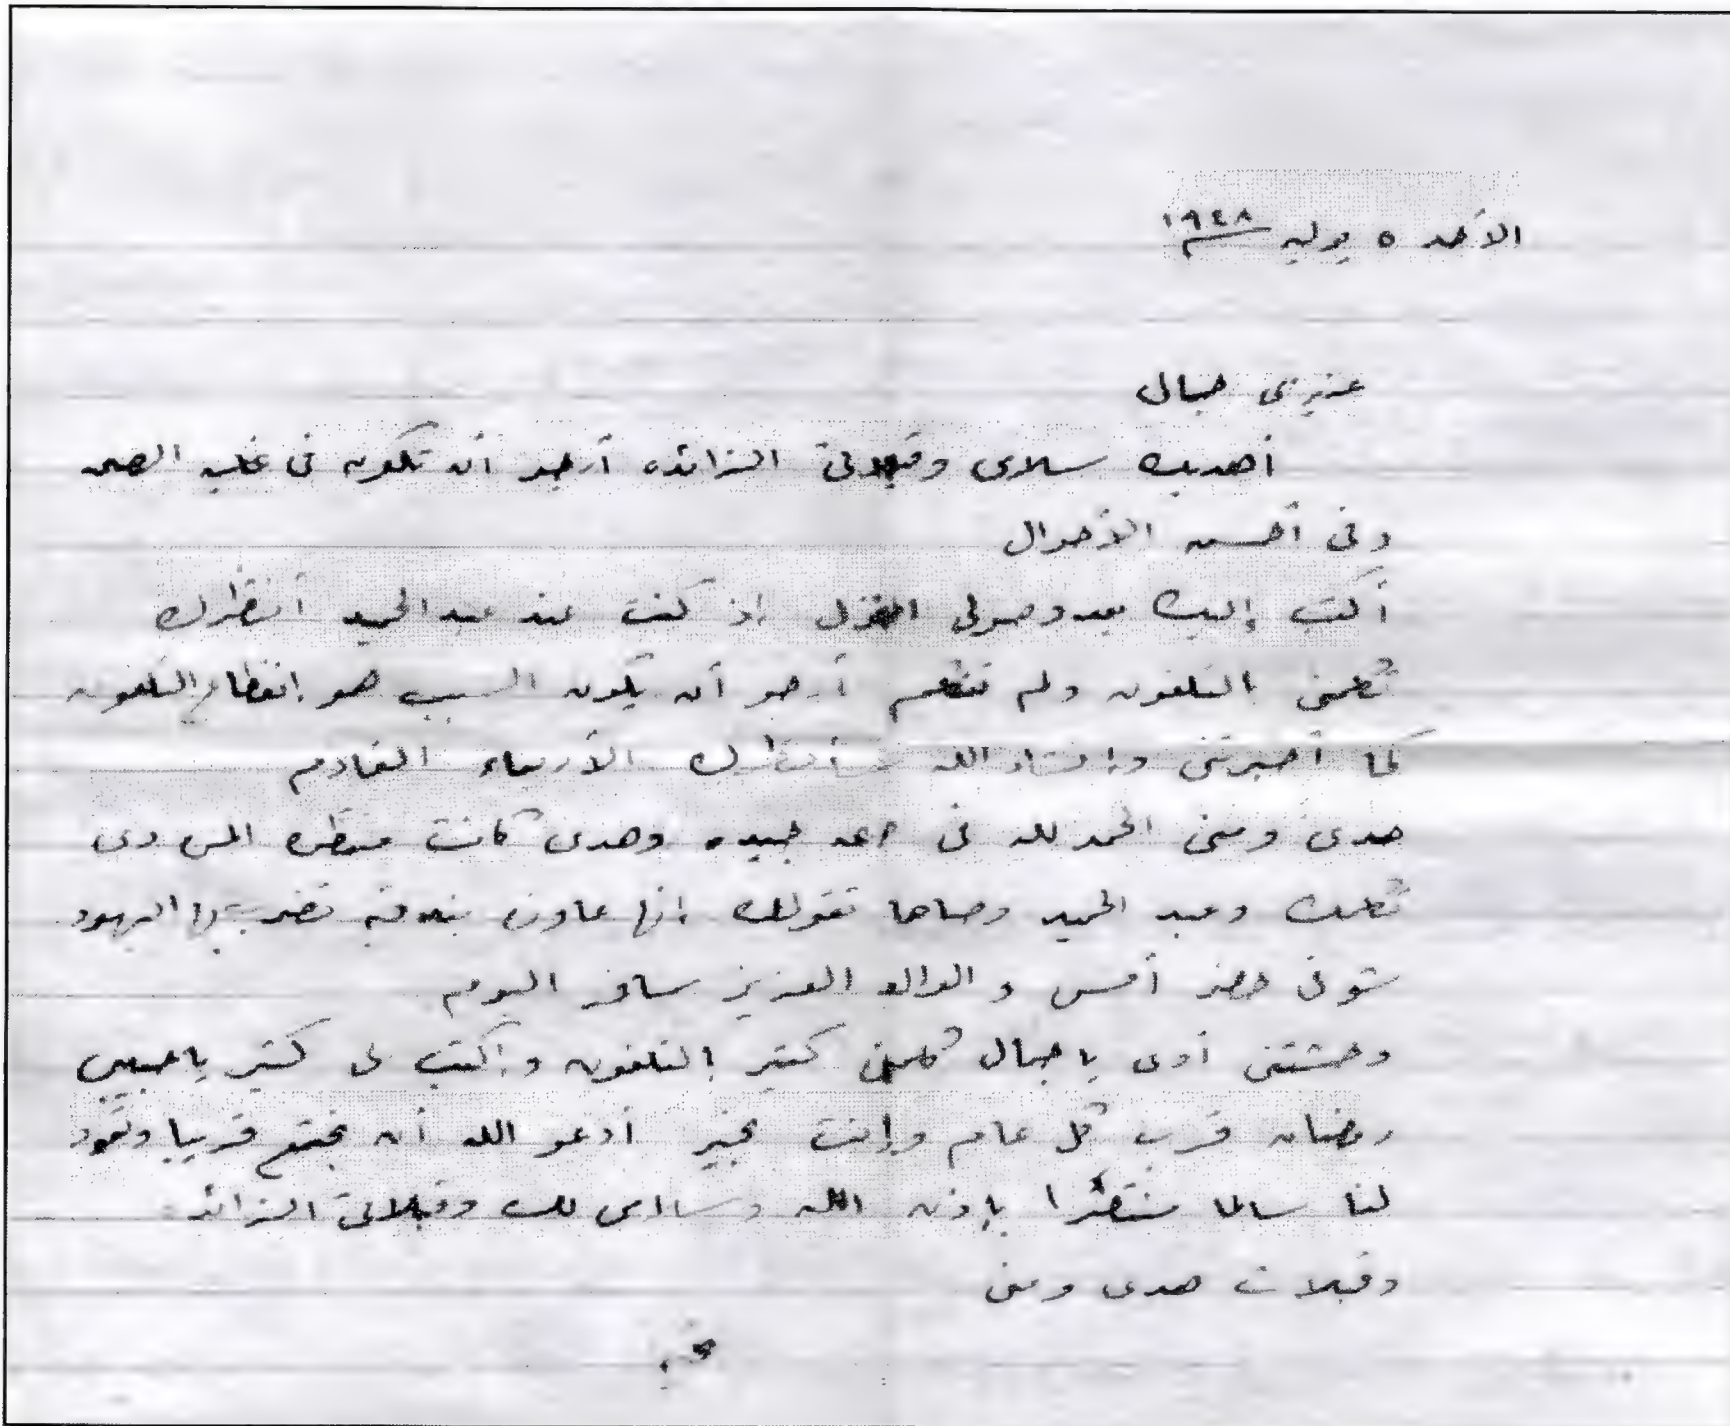 الأحد ٥ يوليه ١٩٤٨
عزيزى جمال
أهديك سلامى وقبلاتى الزائده أرجو أن تكون فى غاية الصحه
وفى أحسن الأحوال
أكتب إليك بعد وصولى المنزل إذ كنت عند عبد الحميد أنتظرك
تكلمنى بالتلفون ولم تتكلم أرجو أن يكون السبب هو إنقطاع التلفون
كما أخبرتنى وإنشاء الله سأنتظرك الأربعاء القادم
هدى ومنى الحمد لله فى صحه جيده وهدى كانت منتظره المره دى
تكلمك وعبد الحميد وصاها تقولك إنها عاوزه بندقيه تضرب بها اليهود
شوقى حضر أمس و الوالد العزيز سافر اليوم
وحشتنى أوى يا جمال كلمنى كتير بالتلفون وإكتب لى كتير يا حبيبى
رمضان قرب كل عام وإنت بخير أدعو الله أن نجتمع قريبا وتعود
لنا سالما منتصرا بإذن الله وسلامى لك وقبلاتى الزائده
وقبلات هدى ومنى